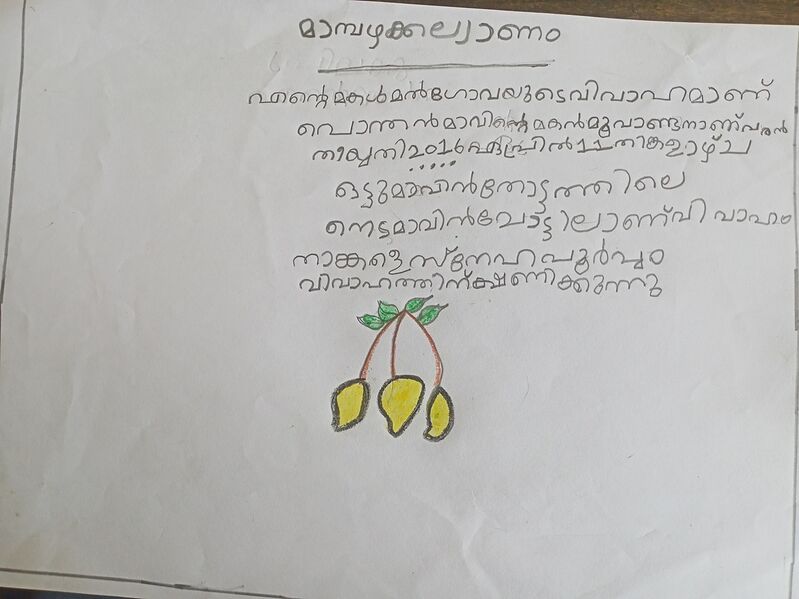 മാമ്പഴക്കല്യാണം
എന്റെ മകൾ മൽഗോവയുടെ വിവാഹമാണ്
പൊന്തൻമാവിന്റെ മകൻ മൂവാണ്ടനാണ് വരൻ
തിയ്യതി 2016 ഏപ്രിൽ 11 തിങ്കളാഴ്ച
ഒട്ടുമാവിൻതോട്ടത്തിലെ
നെടുമാവിൻചോട്ടിലാണ് വിവാഹം
താങ്കളെ സ്നേഹപൂർവ്വം
വിവാഹത്തിന് ക്ഷണിക്കുന്നു